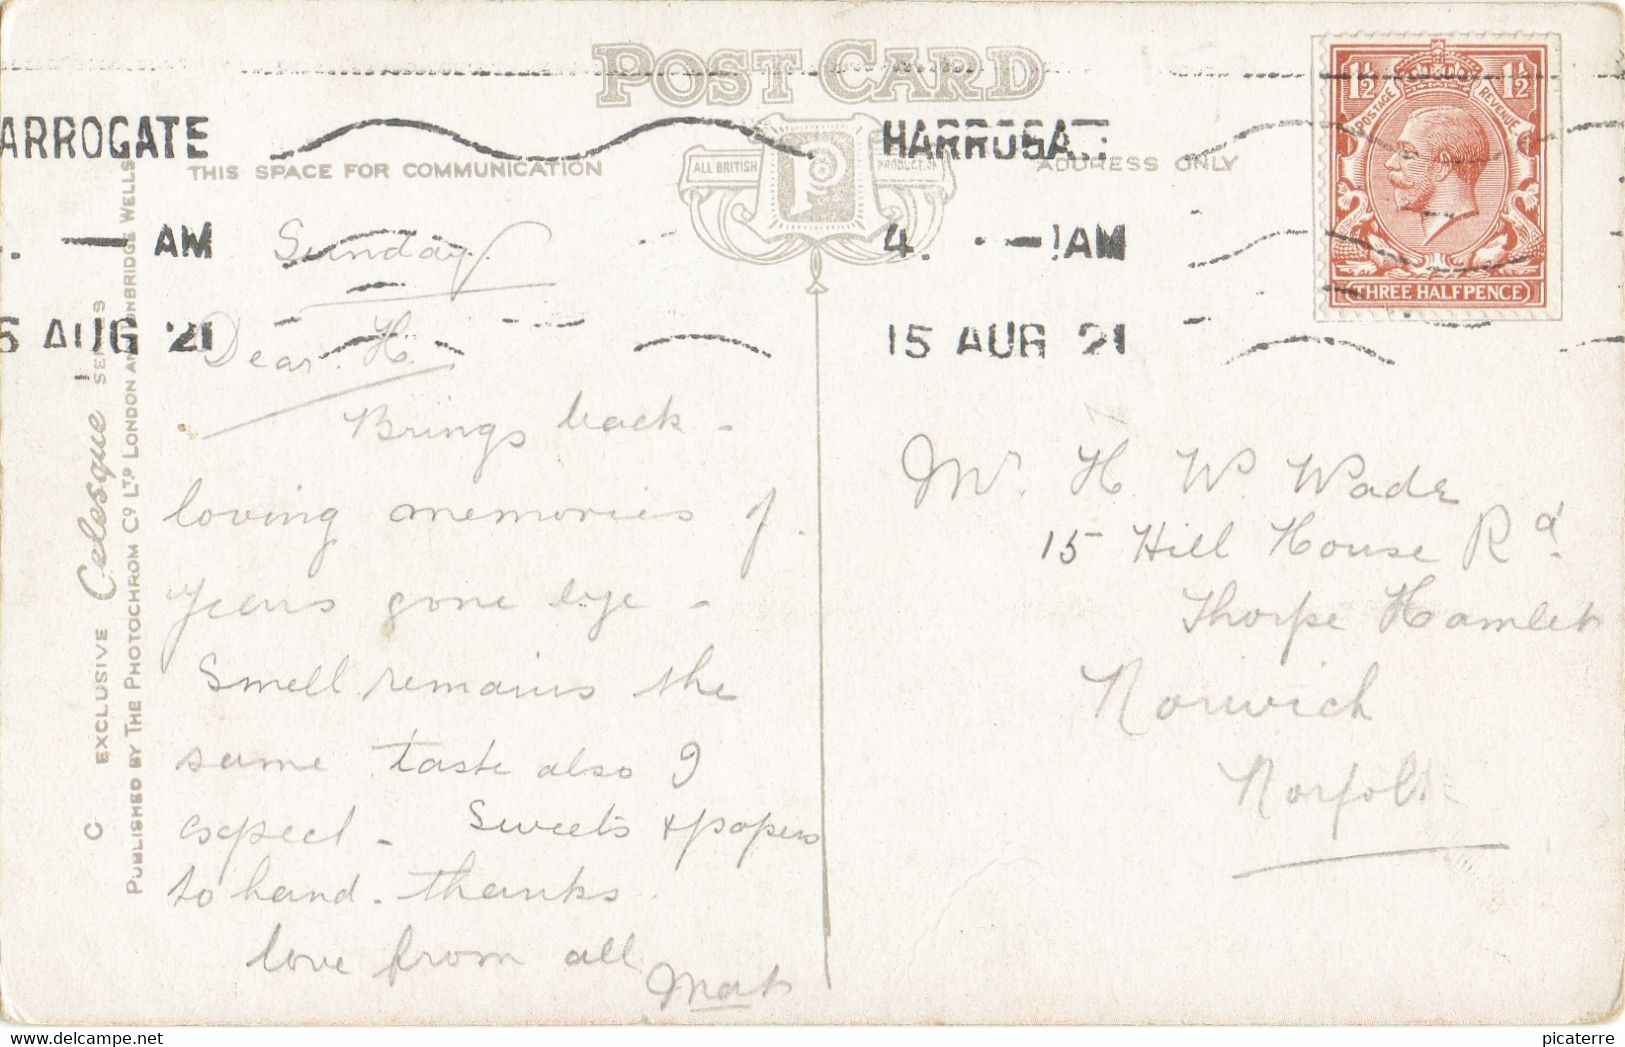 POST CARD
ARROGATE
HARROGA
THIS SPACE FOR COMMUNICATION
ALL BRITISH PRODUCTION
ADDRESS ONLY
AM
4. 1AM
5 AUG 21
15 AUG 21
1½ 1½
POSTAGE REVENUE
THREE HALFPENCE
C EXCLUSIVE Celesque SERIES
PUBLISHED BY THE PHOTOCHROM Co LTD LONDON AND TUNBRIDGE WELLS
Sunday.
Dear H.
Brings back -
loving memories of
years gone bye -
Smell remains the
same taste also I
expect - Sweets & papers
to hand - thanks.
love from all
Mr. H W. Wade
15 Hill House Rd.
Thorpe Hamlet
Norwich
Norfolk
picaterre